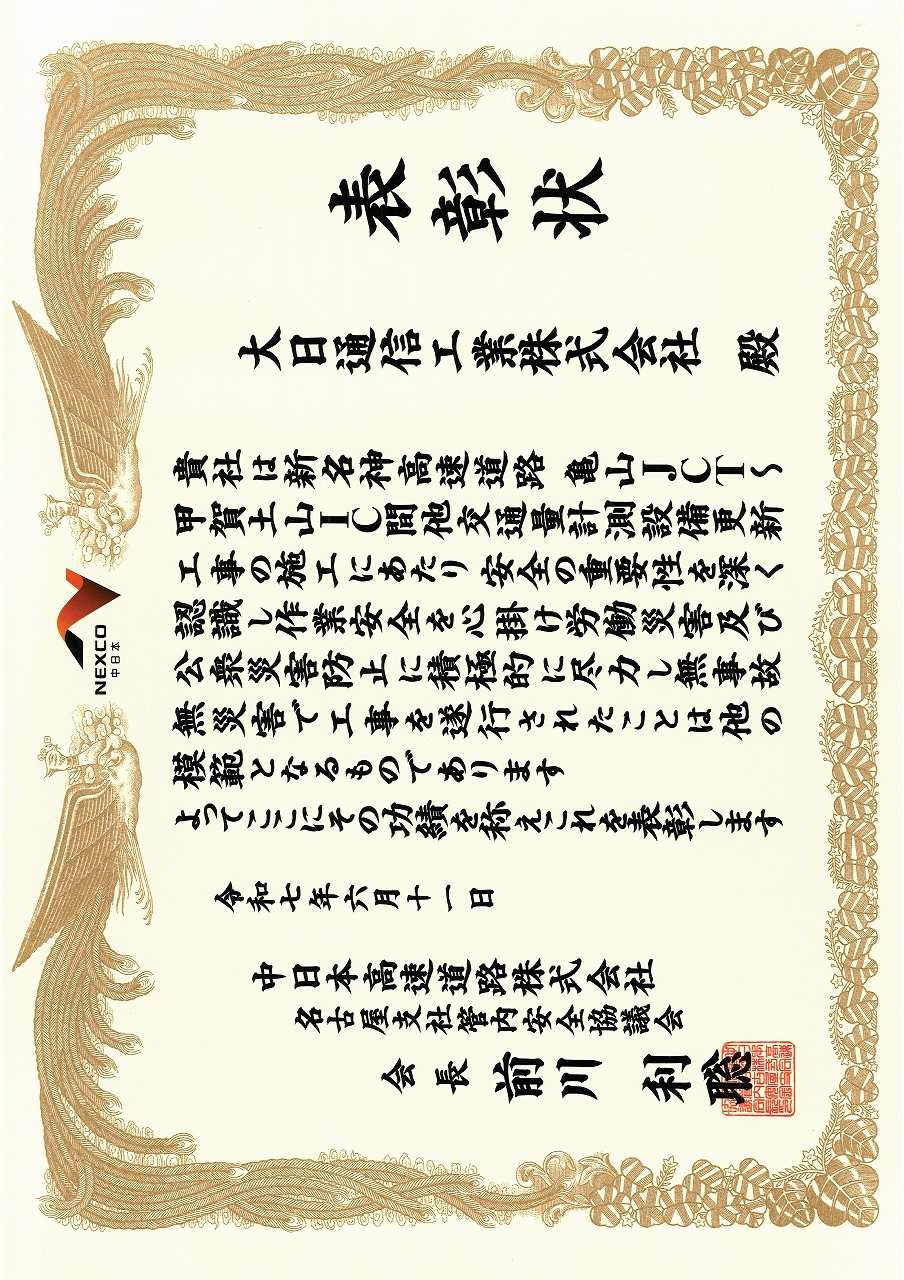 NEXCO
中日本
表彰状
大日通信工業株式会社 殿
貴社は新名神高速道路 亀山JCT～
甲賀土山IC間他交通量計測設備更新
工事の施工にあたり 安全の重要性を深く
認識し作業安全を心掛け労働災害及び
公衆災害防止に積極的に尽力し無事故
無災害で工事を遂行されたことは他の
模範となるものであります
よってここにその功績を称えこれを表彰します
令和七年六月十一日
中日本高速道路株式会社
名古屋支社管内安全協議会
会長 前川 利聡